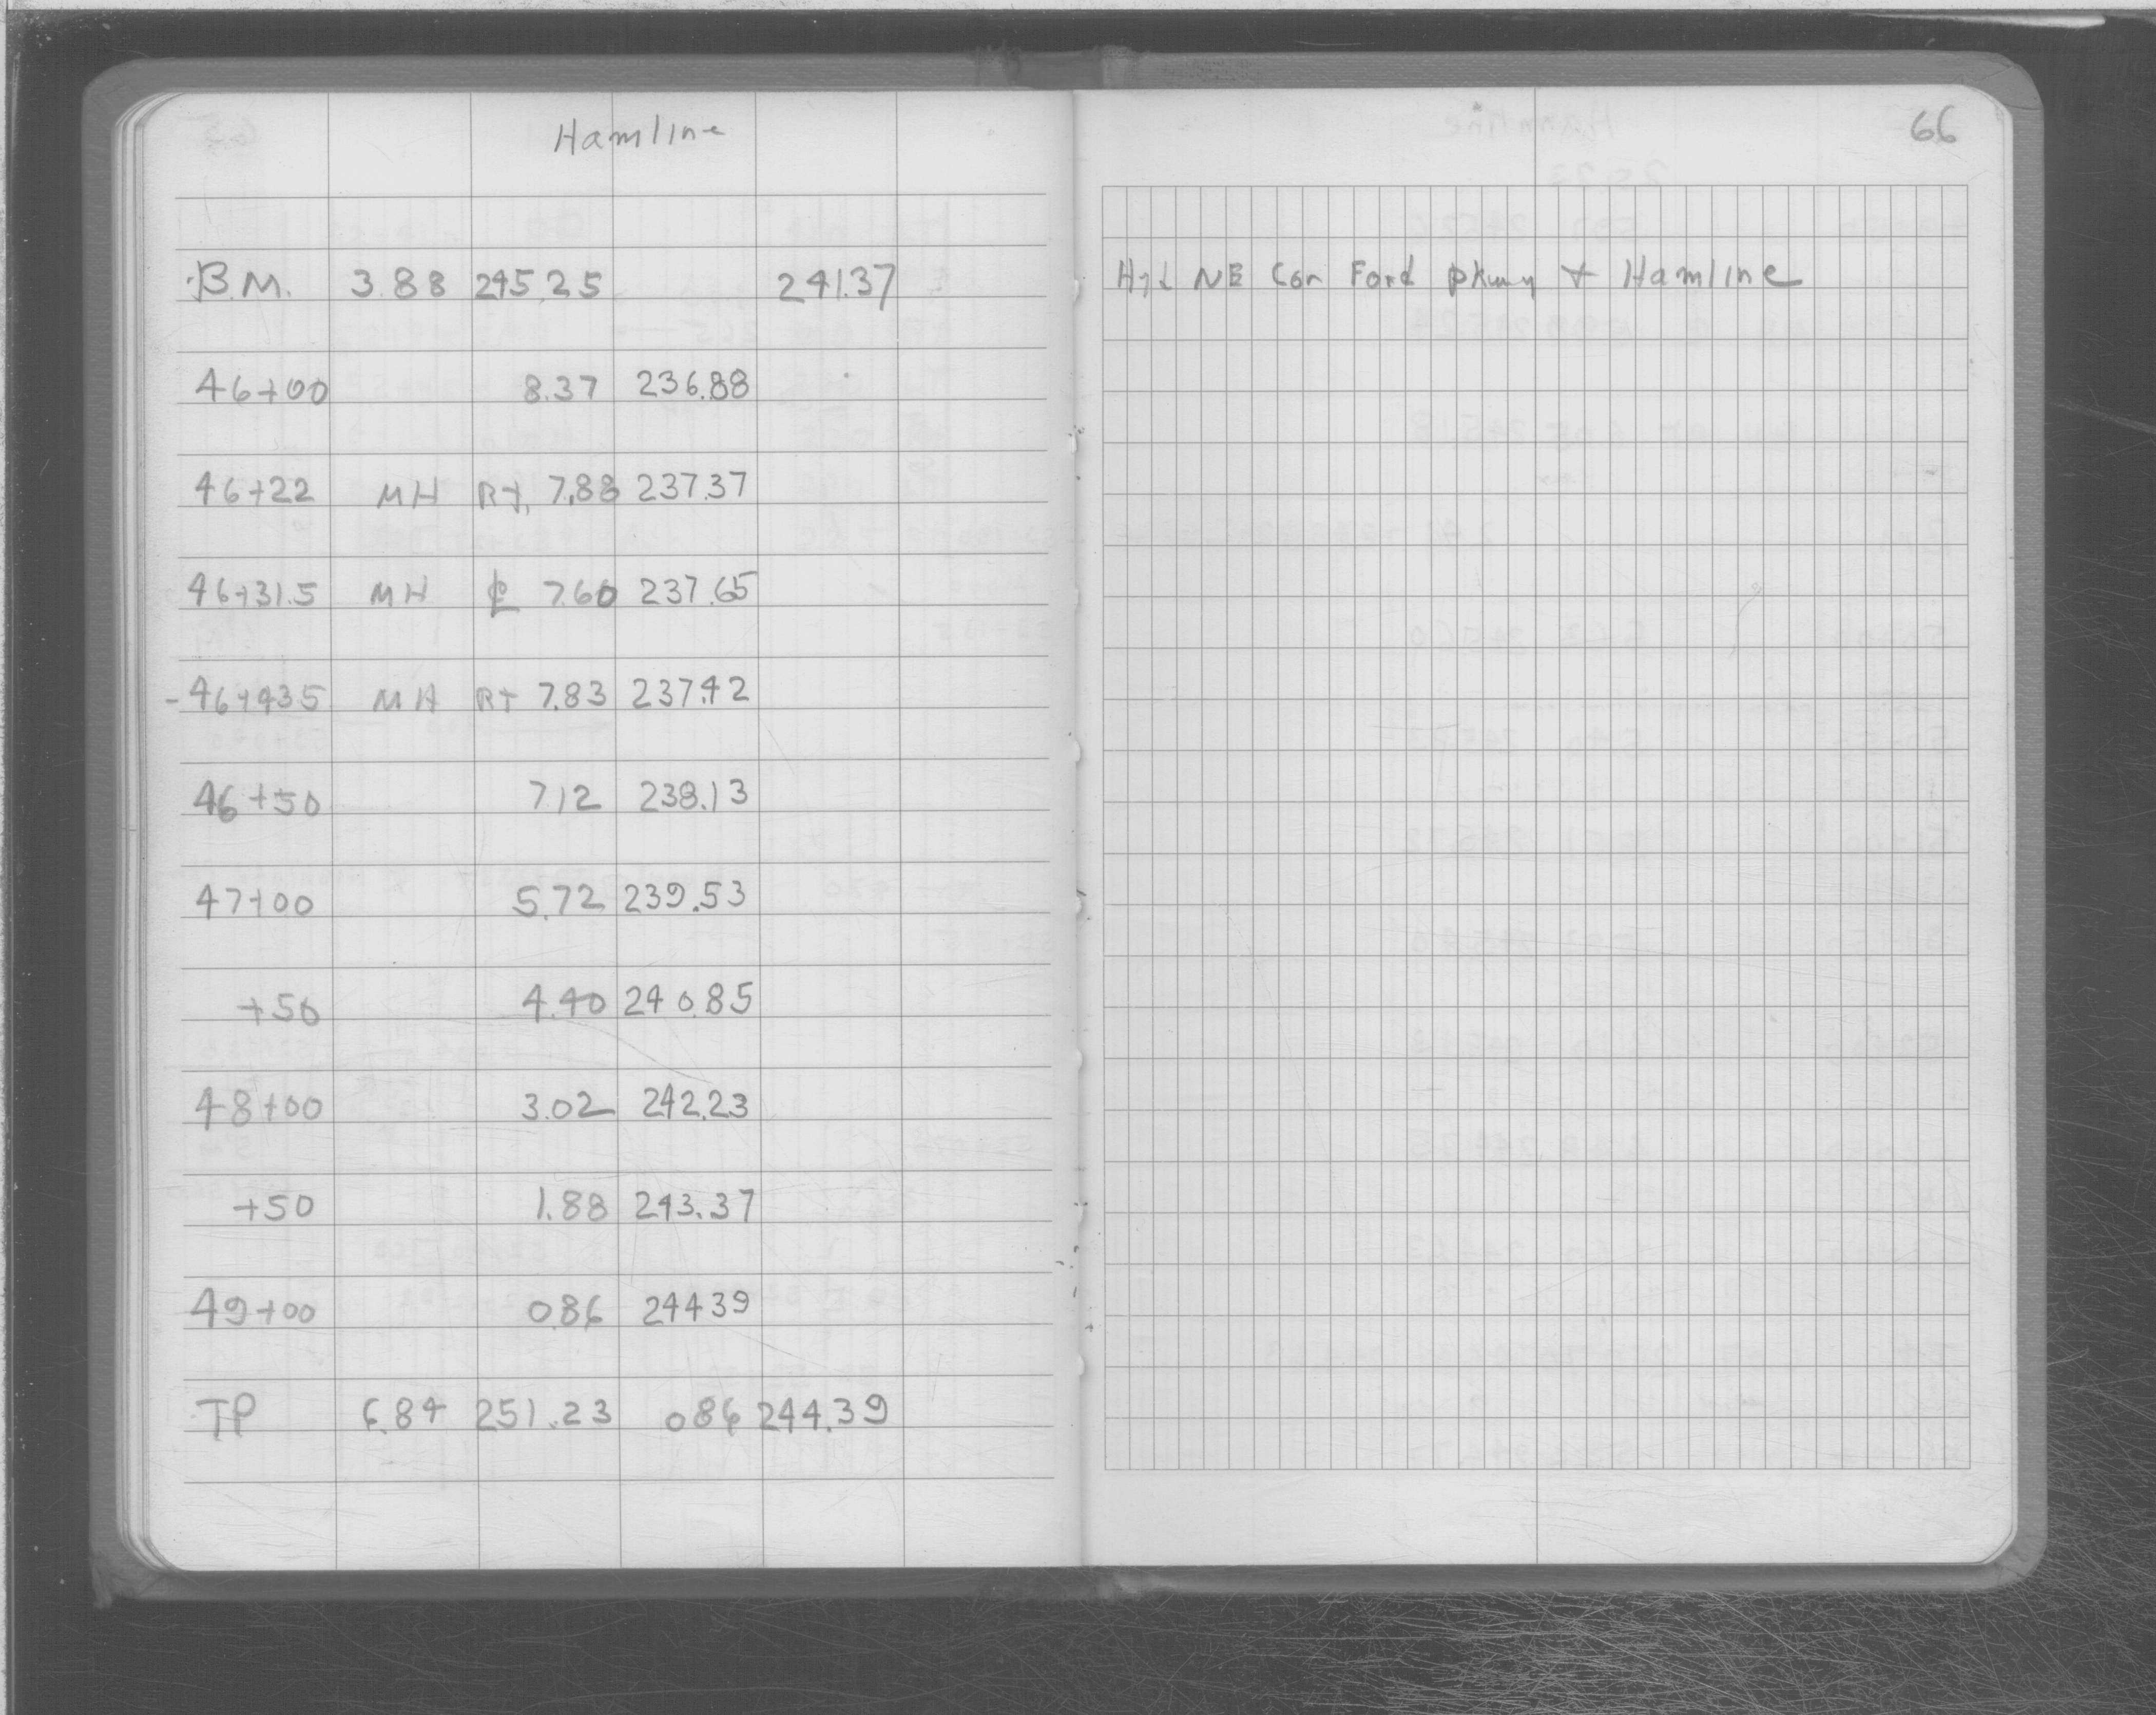 Hamline
B.M. 3.88 245.25 241.37
46+00 8.37 236.88
46+22 MH Rt. 7.88 237.37
46+31.5 MH ℄ 7.60 237.65
-46+435 MH Rt 7.83 237.42
46+50 7.12 238.13
47+00 5.72 239.53
+50 4.40 240.85
48+00 3.02 242.23
+50 1.88 243.37
49+00 0.86 244.39
TP 6.84 251.23 0.86 244.39
66
Hyd NE Cor Ford pkwy + Hamline